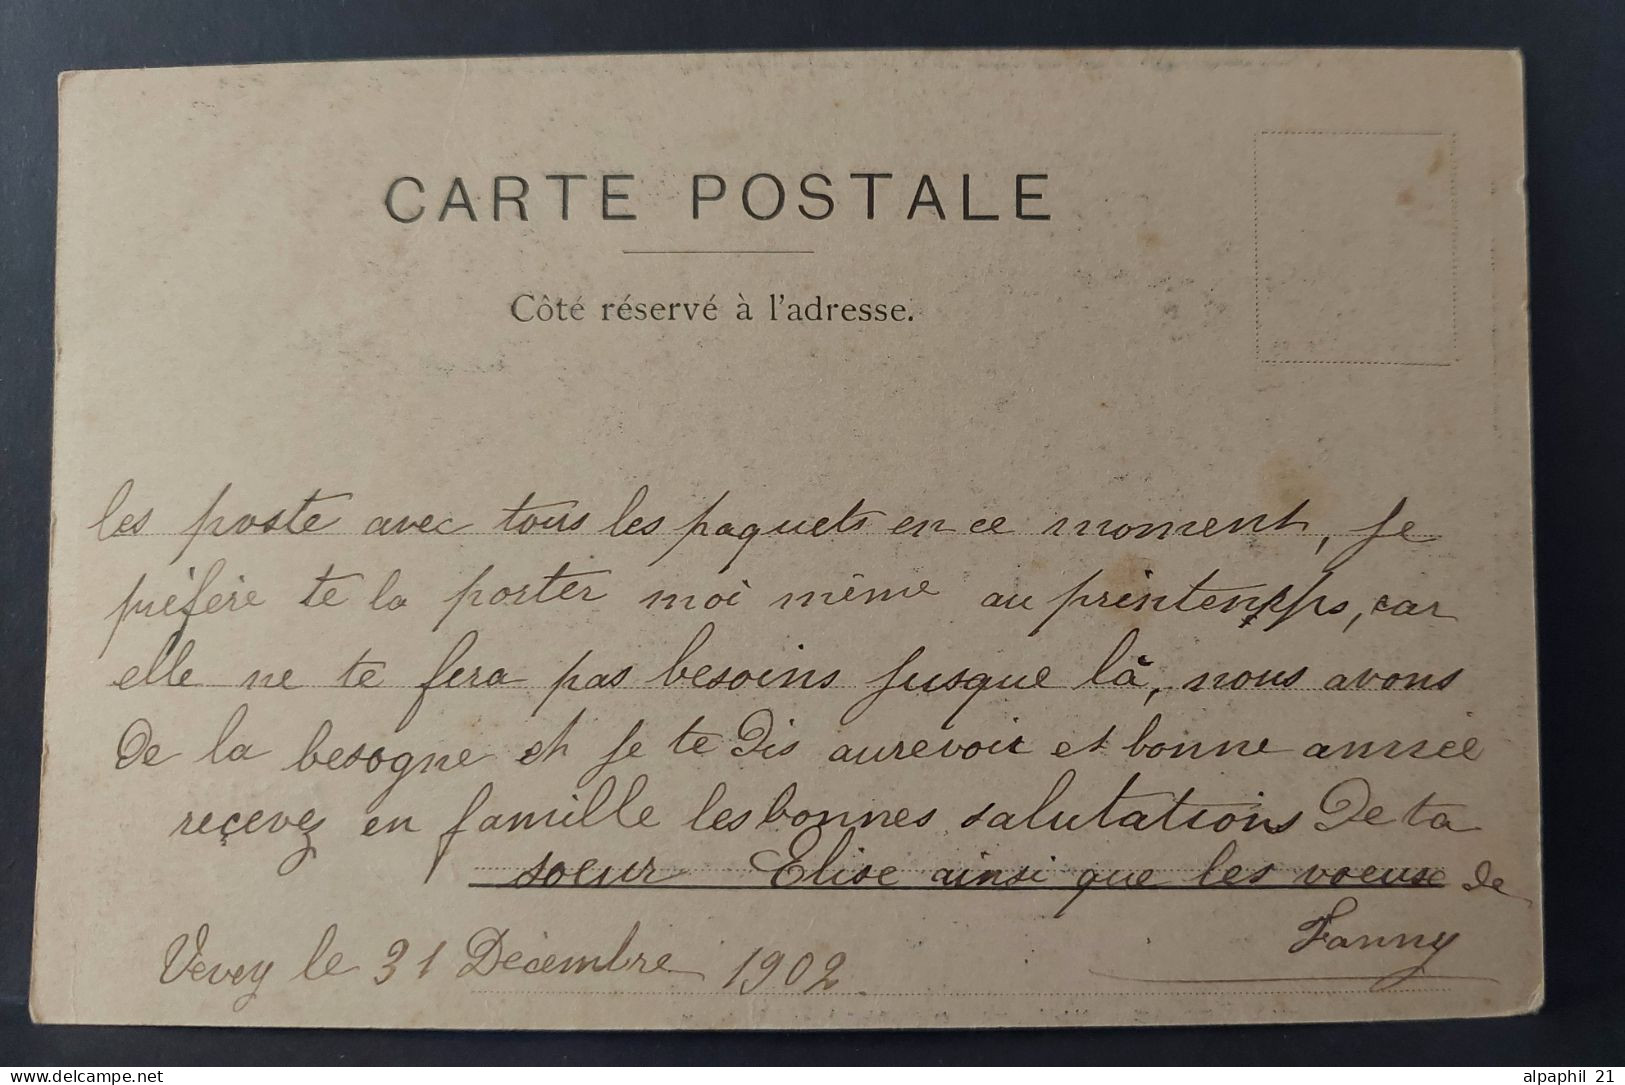 CARTE POSTALE
Côté réservé à l'adresse.
les poste avec tous les paquets en ce moment, je
préfère te la porter moi même au printemps, car
elle ne te fera pas besoins jusque là, nous avons
de la besogne et je te dis aurevoir et bonne année
reçevez en famille les bonnes salutations de ta
soeur Elise ainsi que les voeux de
Fanny
Vevey le 31 Décembre 1902
www.delcampe.net
alpaphil 21